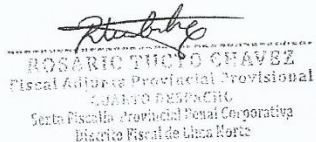 ROSARIO TUCTO CHAVEZ
Fiscal Adjunta Provincial Provisional
CUARTO DESPACHO
Sexta Fiscalía Provincial Penal Corporativa
Distrito Fiscal de Lima Norte